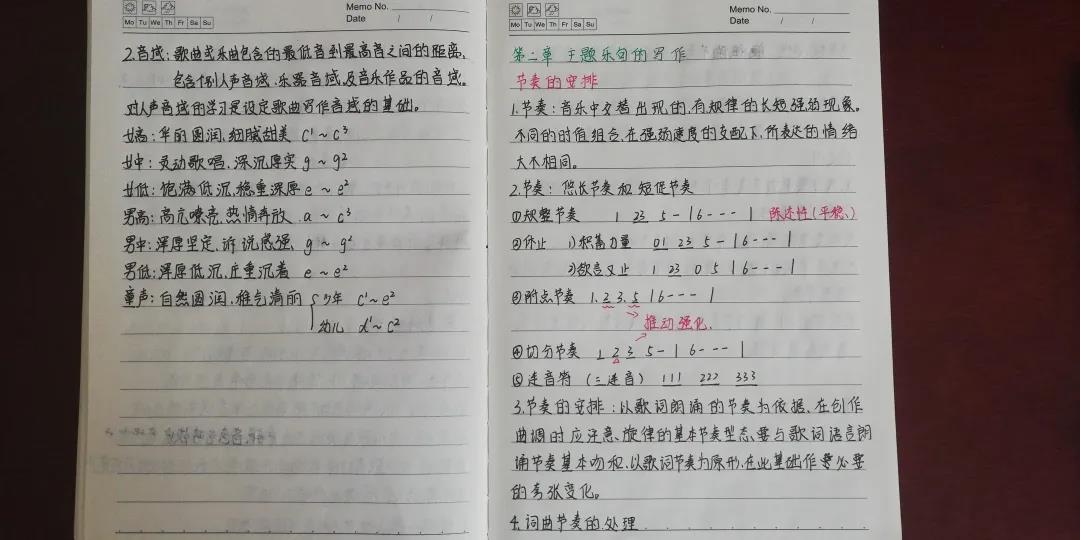 Memo No.
Mo Tu We Th Fr Sa Su
Date / /
2.音域：歌曲或乐曲包含的最低音到最高音之间的距离，
包含个别人声音域、乐器音域及音乐作品的音域。
对人声音域的学习是设定歌曲写作音域的基础。
女高：华丽圆润、细腻甜美 c¹~c³
女中：灵动歌唱、深沉厚实 g~g²
女低：饱满低沉、稳重深厚 e~e²
男高：高亢嘹亮、热情奔放 a~c³
男中：浑厚坚定、诉说感强 g~g²
男低：浑厚低沉、庄重沉着 e~e²
童声：自然圆润、稚气清丽 { 少年 c¹~e²
幼儿 d¹~c²
Memo No.
Mo Tu We Th Fr Sa Su
Date / /
第二章 主题乐句的写作
节奏的安排
1.节奏：音乐中交替出现的，有规律的长短强弱现象。
不同的时值组合，在强弱速度的支配下，所表达的情绪
大不相同。
2.节奏：悠长节奏和短促节奏
①规整节奏 1 23 5 - | 6 - - - | 陈述性(平稳)
②休止 1)积蓄力量 01 23 5 - | 6 - - - |
2)欲言又止 1 23 0 5 | 6 - - - |
③附点节奏 1. 2 3. 5 | 6 - - - |
推动强化
④切分节奏 1 2 3 5 - | 6 - - - |
⑤连音符 (三连音) 111 222 333
3.节奏的安排：以歌词朗诵的节奏为依据，在创作
曲调时应注意，旋律的基本节奏型态，要与歌词语言朗
诵节奏基本吻合，以歌词节奏为原形，在此基础作必要
的夸张变化。
4.词曲节奏的处理